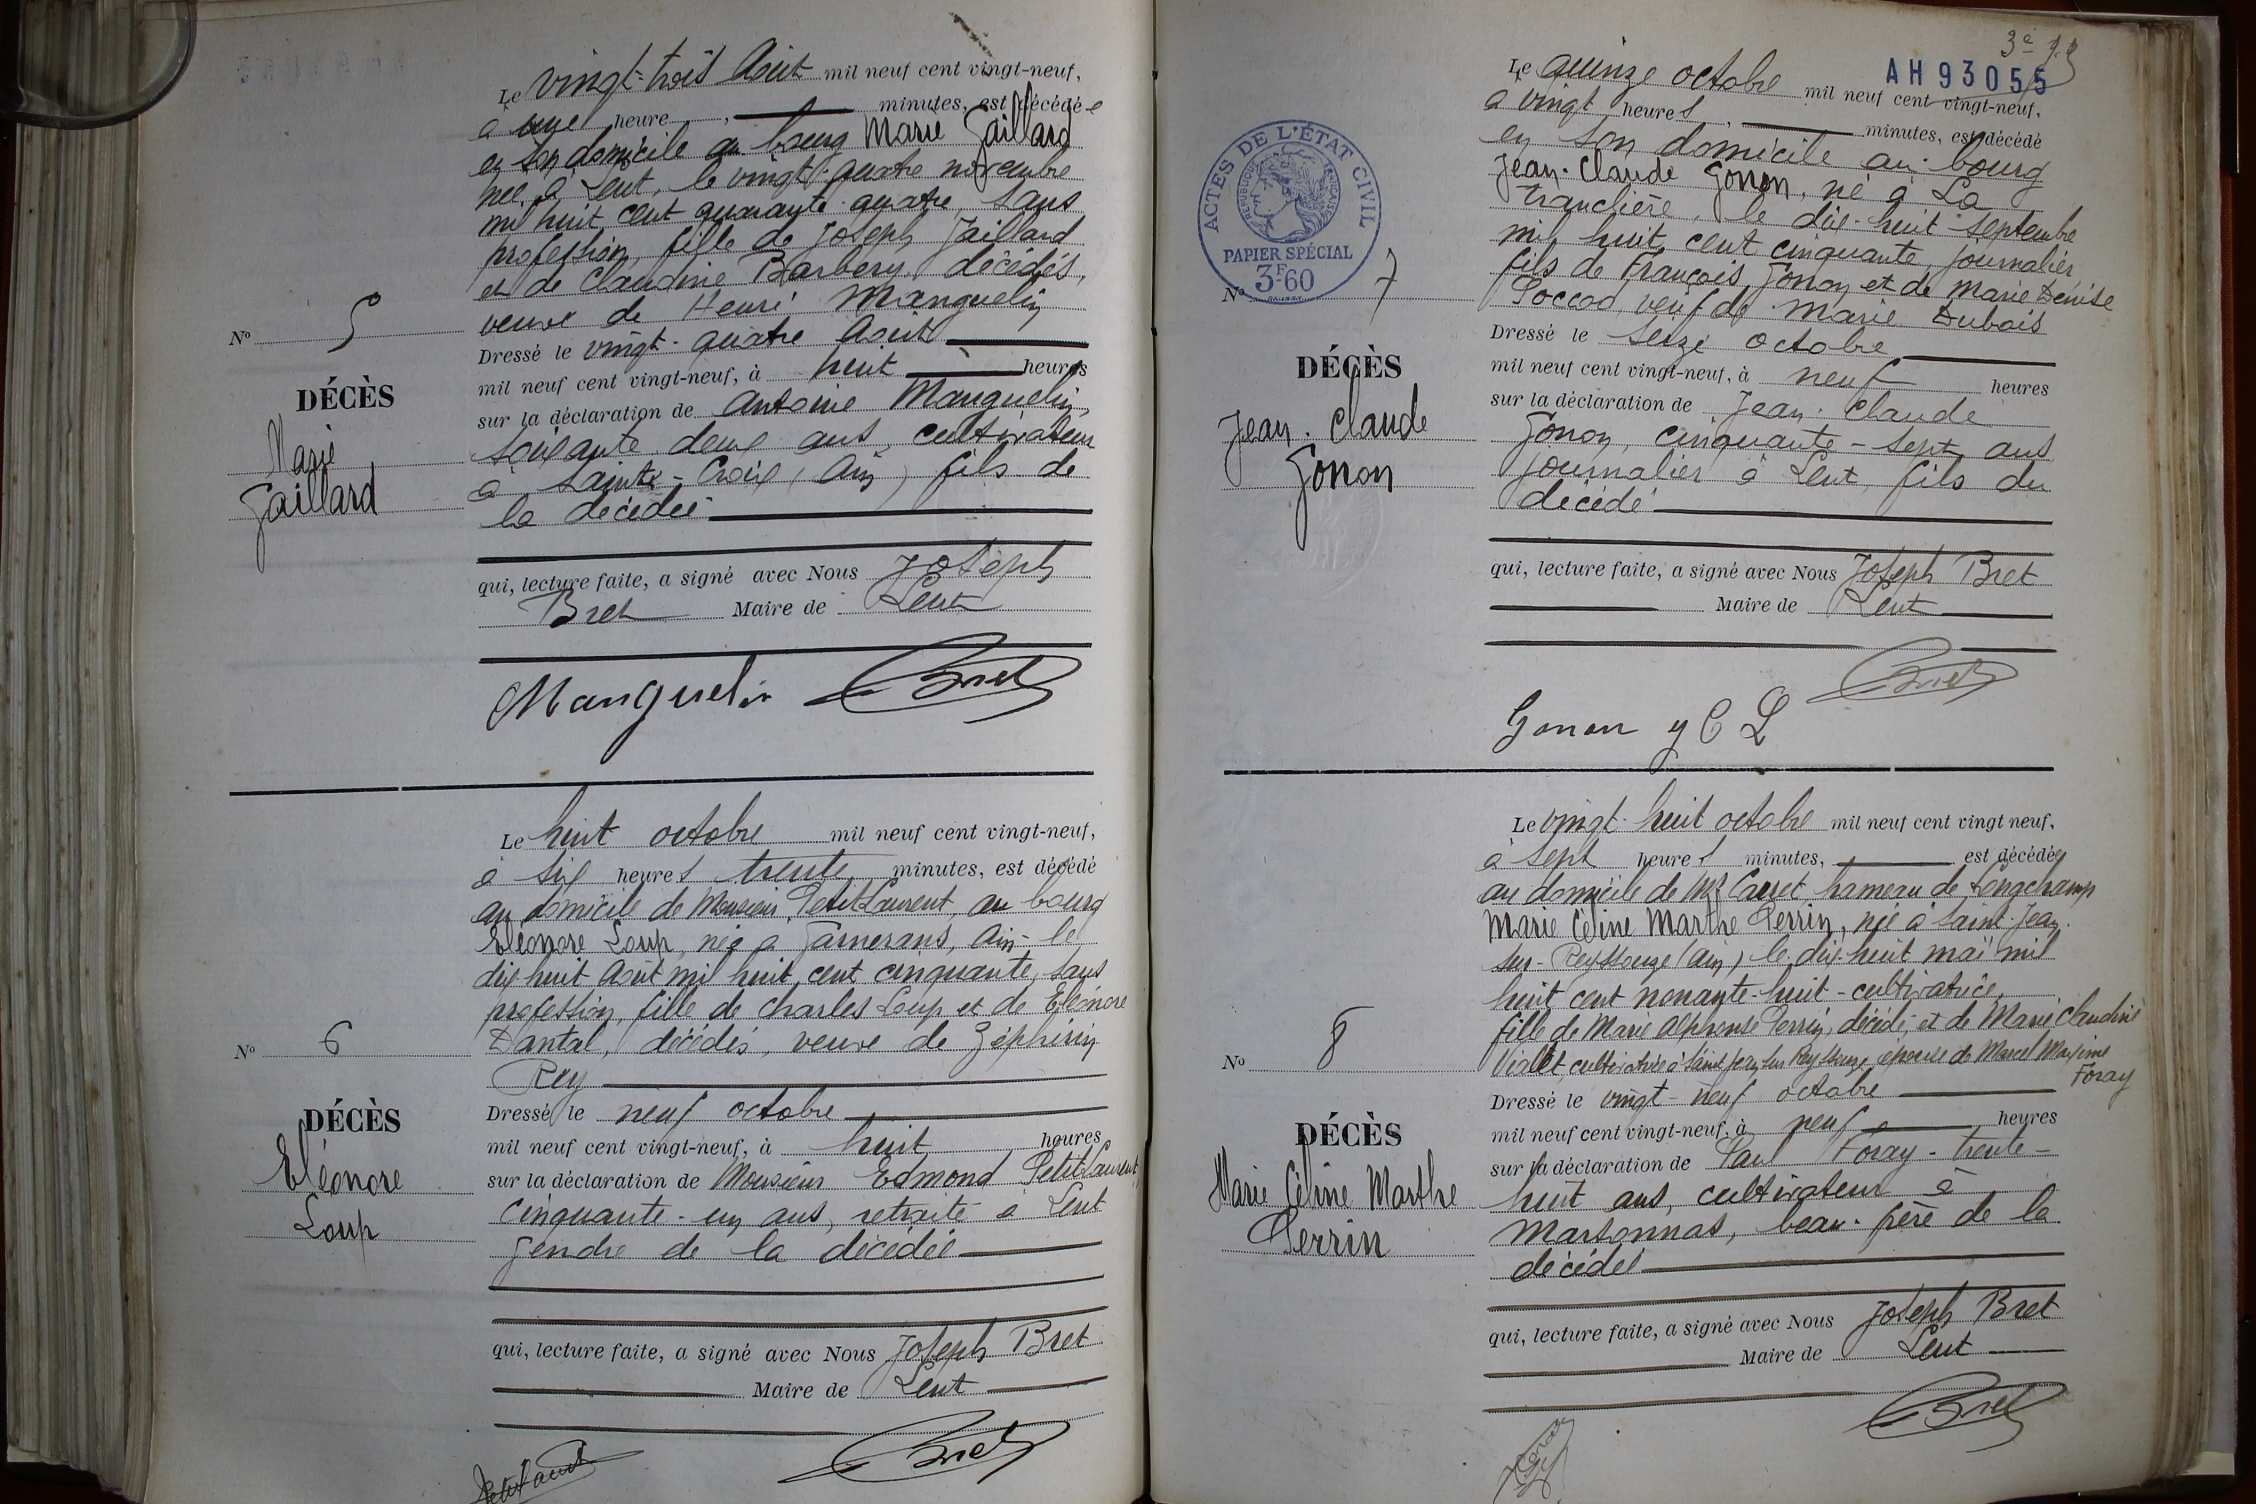 Le vingt-trois Août mil neuf cent vingt-neuf,
à une heure, minutes, est décédée
en son domicile au bourg Marie Jaillard
née à Lent, le vingt-quatre novembre
mil huit cent quarante quatre, sans
profession, fille de Joseph Jaillard
et de Claudine Barbery, décédés,
veuve de Henri Manguelin
N° 5
Dressé le vingt-quatre Août
mil neuf cent vingt-neuf, à huit heures
DÉCÈS
Marie
Jaillard
sur la déclaration de Antoine Manguelin,
soixante deux ans, cultivateur
à Sainte-Croix (Ain) fils de
la décédée
qui, lecture faite, a signé avec Nous Joseph
Bret Maire de Lent
Manguelin Bret
Le huit octobre mil neuf cent vingt-neuf,
à six heures trente minutes, est décédé
au domicile de Monsieur PetitLaurent, au bourg
Eléonore Loup, née à Garnerans, Ain - le
dix huit Août mil huit cent cinquante, sans
profession, fille de Charles Loup et de Eléonore
Dantal, décédés, veuve de Zéphirin
Rey
N° 6
Dressé le neuf octobre
mil neuf cent vingt-neuf, à huit heures
DÉCÈS
Eléonore
Loup
sur la déclaration de Monsieur Edmond PetitLaurent
cinquante-un ans, retraité à Lent
gendre de la décédée
qui, lecture faite, a signé avec Nous Joseph Bret
Maire de Lent
Bret
3e
AH 93055
Le quinze octobre mil neuf cent vingt-neuf,
à vingt heures, minutes, est décédé
en son domicile au bourg
Jean-Claude Gonon, né à La
Tranclière, le dix-huit septembre
mil huit cent cinquante, journalier
fils de François Gonon et de Marie Denise
Soccod, veuf de Marie Dubois
ACTES DE L'ÉTAT CIVIL
REPUBLIQUE FRANÇAISE
PAPIER SPÉCIAL
3F-60
N° 7
Dressé le seize octobre
mil neuf cent vingt-neuf, à neuf heures
DÉCÈS
Jean-Claude
Gonon
sur la déclaration de Jean-Claude
Gonon, cinquante-sept ans
journalier à Lent, fils du
décédé
qui, lecture faite, a signé avec Nous Joseph Bret
Maire de Lent
Bret
Gonon
Le vingt-huit octobre mil neuf cent vingt neuf,
à sept heures minutes, est décédée
au domicile de Mr Carret hameau de Longchamp
Marie Céline Marthe Perrin, née à Saint-Jean-
sur-Reyssouze (Ain), le dix-huit mai mil
huit cent nonante-huit - cultivatrice,
fille de Marie Alphonse Perrin, décédé, et de Marie Claudine
Viallet, cultivatrice à Saint Jean sur Reyssouze, épouse de Marcel Maxime
Foray
N° 8
Dressé le vingt-neuf octobre
mil neuf cent vingt-neuf, à neuf heures
DÉCÈS
Marie Céline Marthe
Perrin
sur la déclaration de Paul Foray - trente-
huit ans, cultivateur à
Marsonnas, beau-frère de la
décédée
qui, lecture faite, a signé avec Nous Joseph Bret
Maire de Lent
Bret
Foray